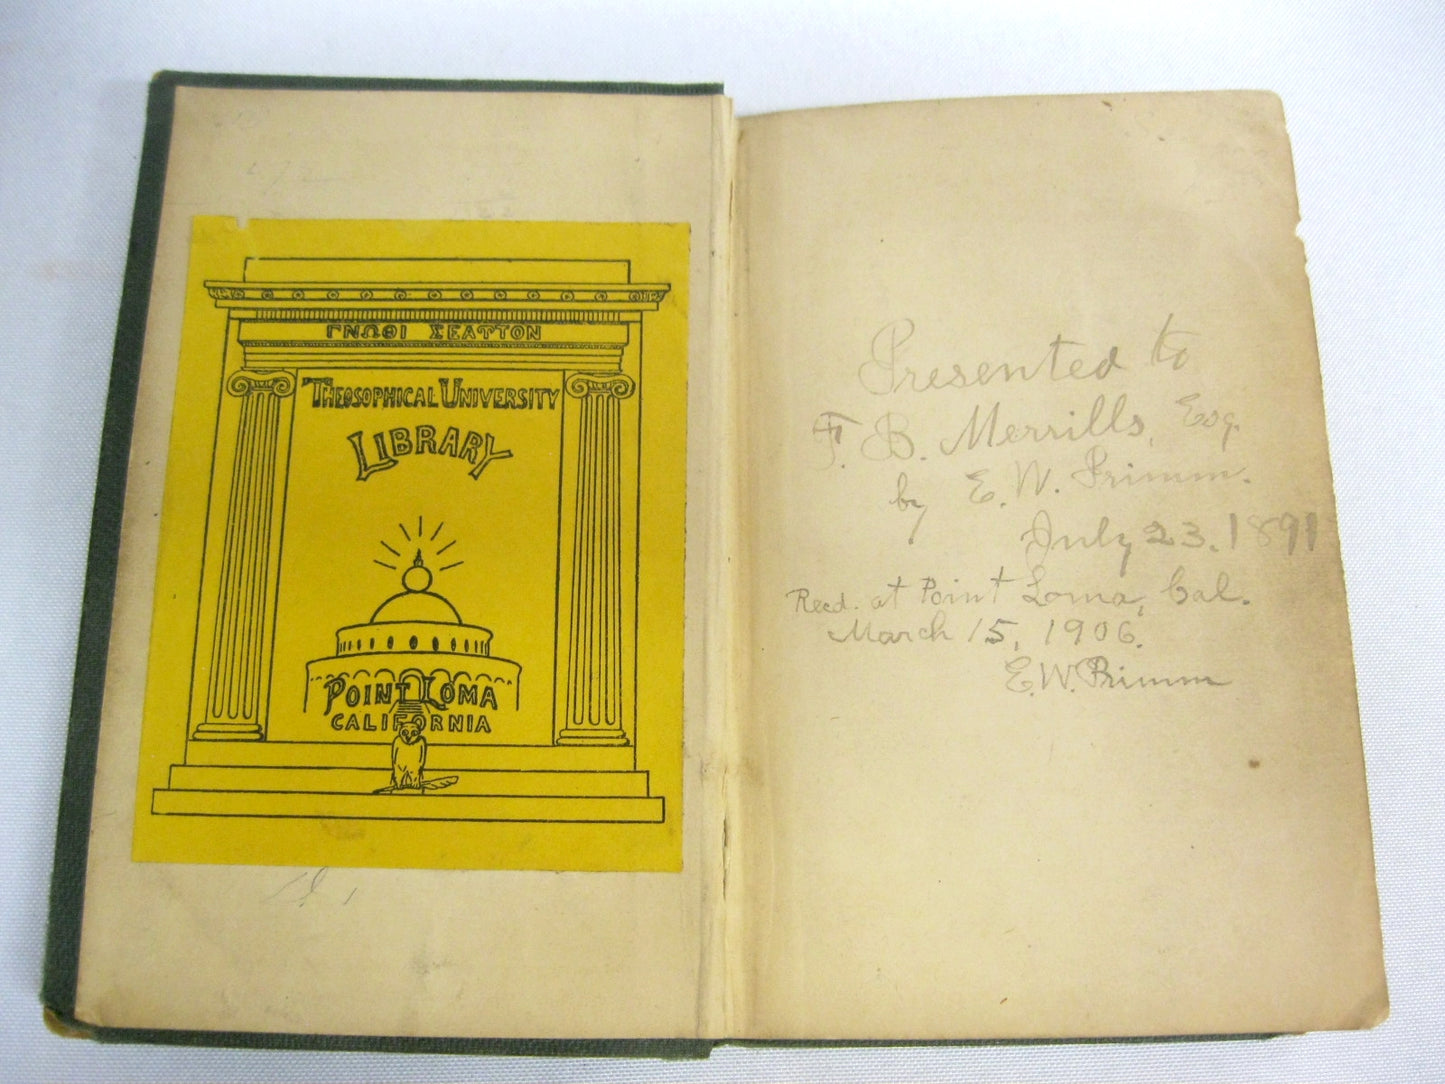 ΓΝΩΘΙ ΣΕΑΥΤΟΝ
THEOSOPHICAL UNIVERSITY
LIBRARY
POINT LOMA
CALIFORNIA
Presented to
F. B. Merrills, Esq.
by E. W. Primm.
July 23. 1891
Recd. at Point Loma, Cal.
March 15, 1906.
E. W. Primm